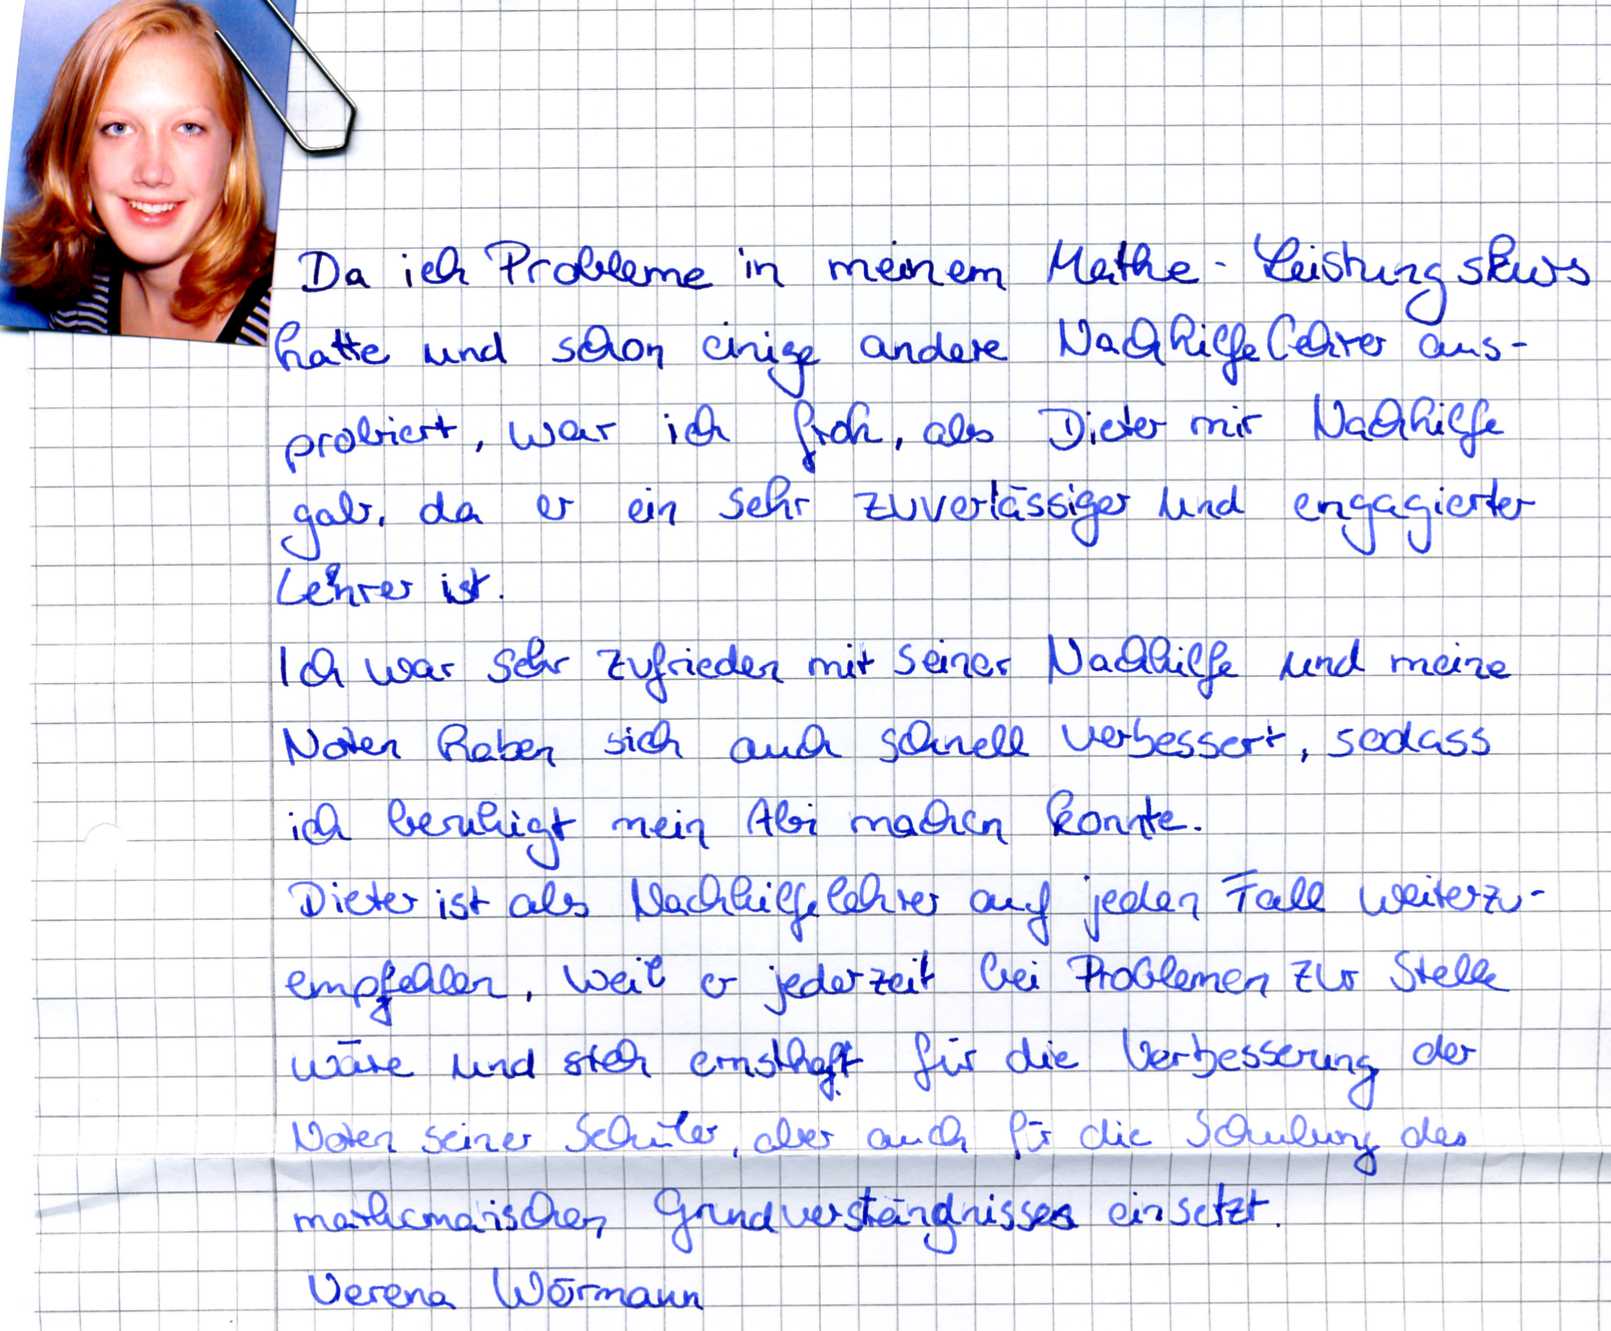 Da ich Probleme in meinem Mathe-Leistungskurs
hatte und schon einige andere Nachhilfelehrer aus-
probiert, war ich froh, als Dieter mir Nachhilfe
gab, da er ein sehr zuverlässiger und engagierter
Lehrer ist.
Ich war sehr zufrieden mit seiner Nachhilfe und meine
Noten haben sich auch schnell verbessert, sodass
ich beruhigt mein Abi machen konnte.
Dieter ist als Nachhilfelehrer auf jeden Fall weiterzu-
empfehlen, weil er jederzeit bei Problemen zur Stelle
wäre und sich ernsthaft für die Verbesserung der
Noten seiner Schüler, aber auch für die Schulung des
mathematischen Grundverständnisses einsetzt.
Verena Wörmann